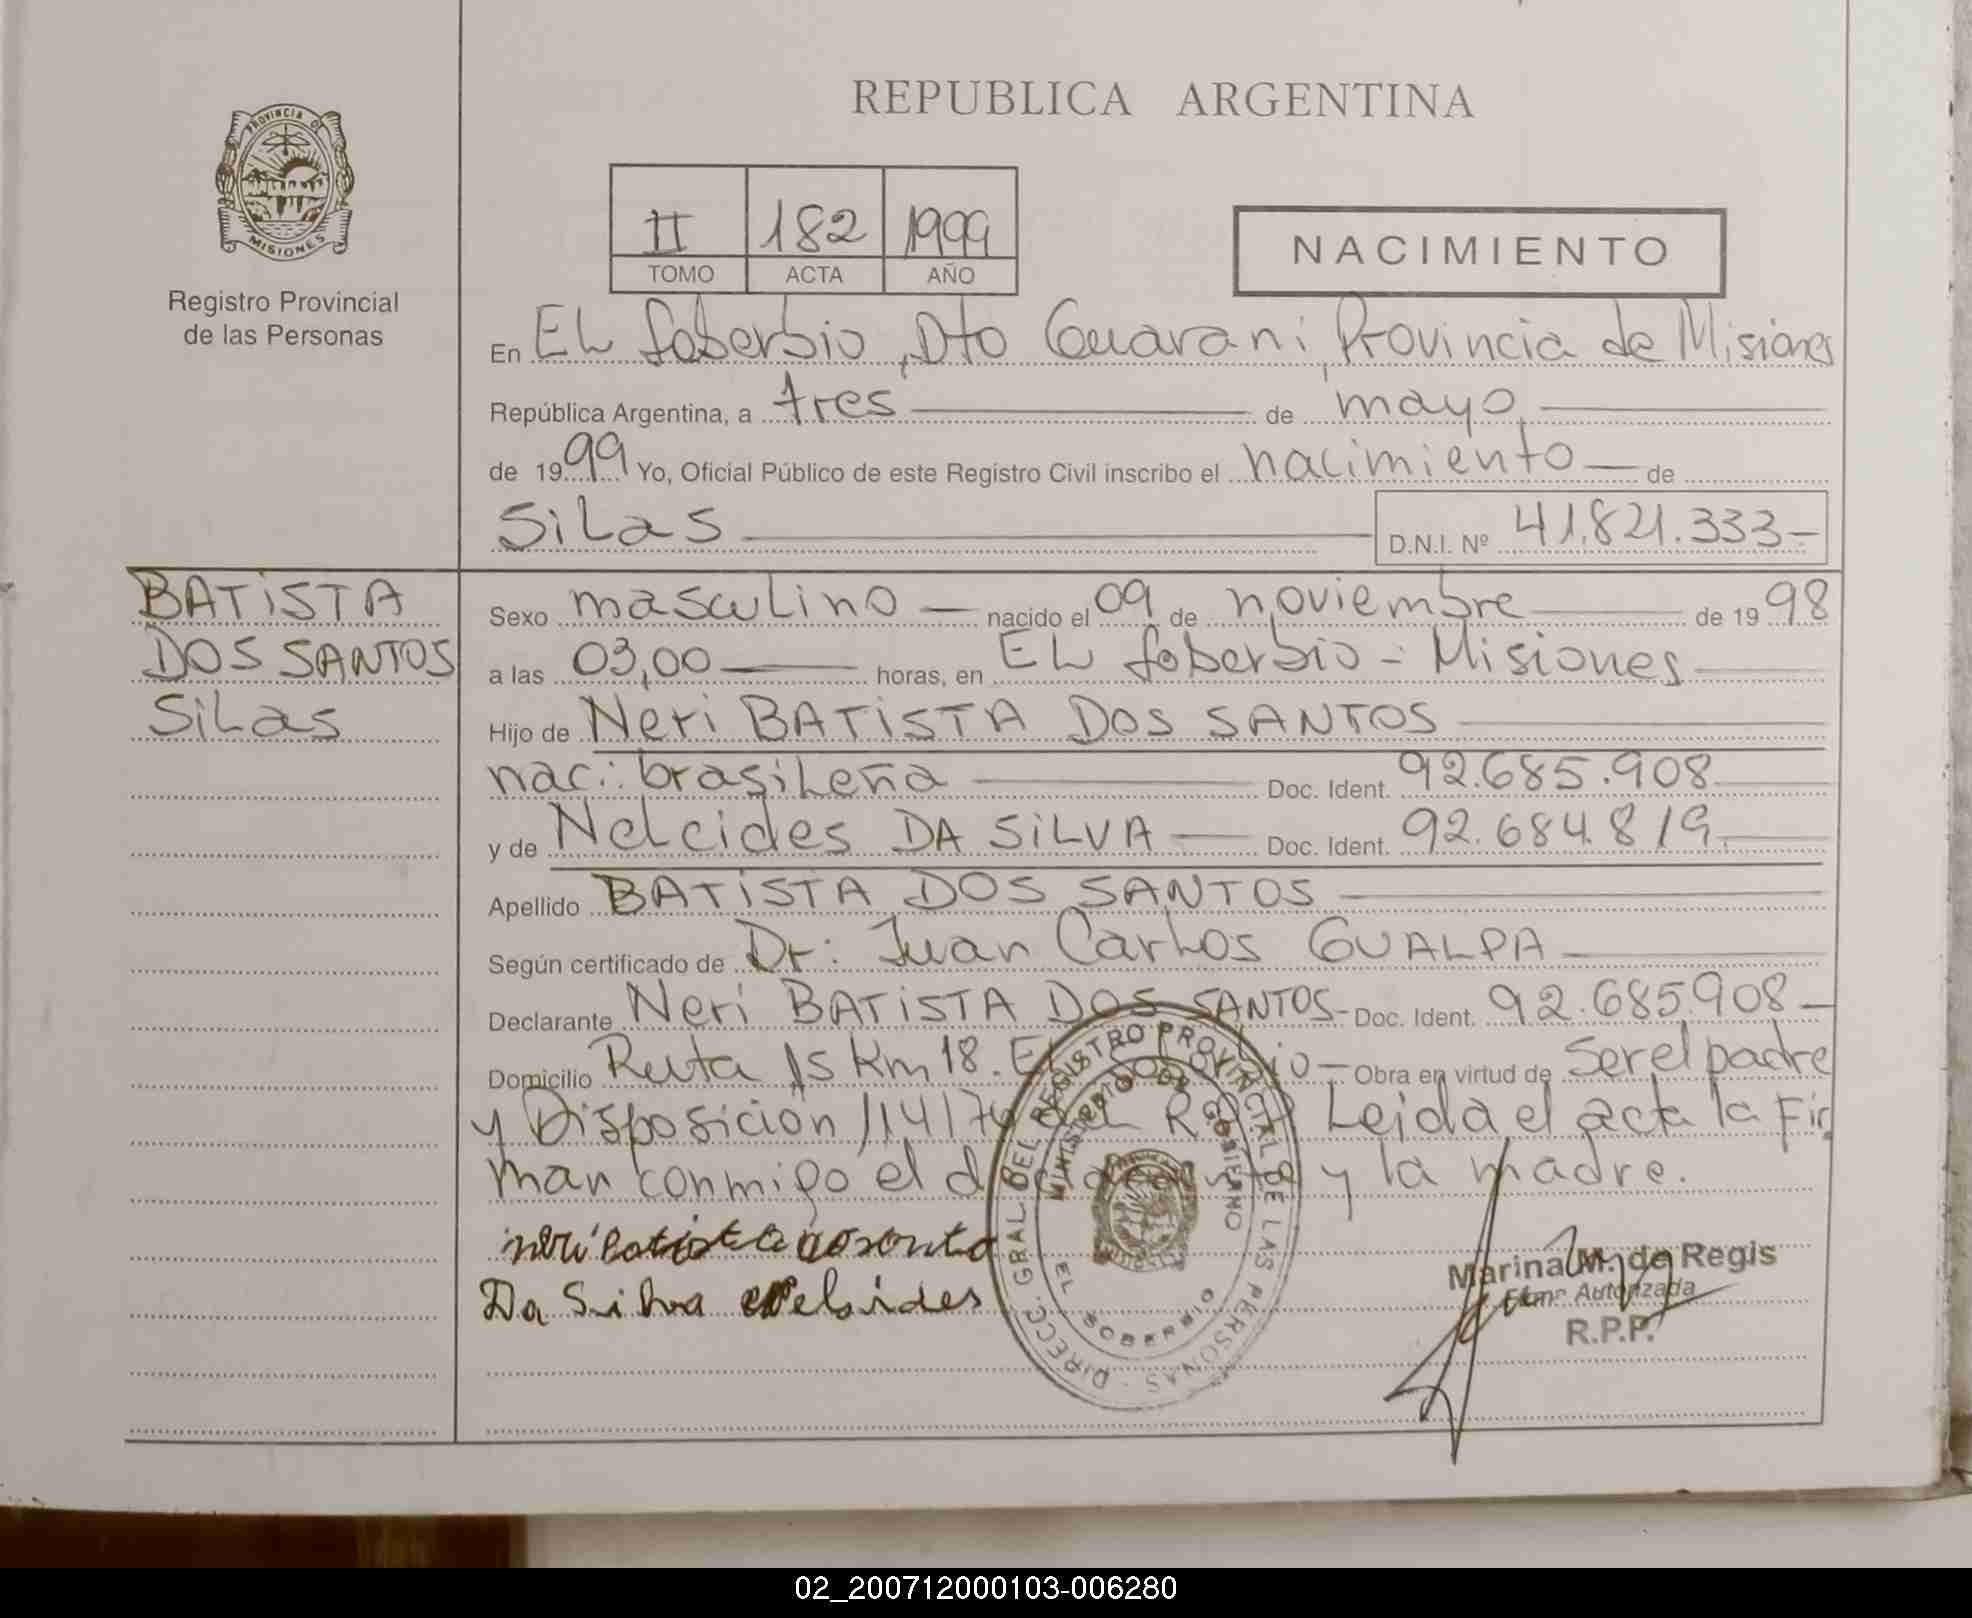 REPUBLICA ARGENTINA
PROVINCIA DE
MISIONES
Registro Provincial
de las Personas
II 182 1999
TOMO ACTA AÑO
NACIMIENTO
En EL Soberbio, Dto Guarani, Provincia de Misiones
República Argentina, a tres de mayo
de 1999 Yo, Oficial Público de este Registro Civil inscribo el nacimiento de
SiLas D.N.I. Nº 41.821.333-
BATiSTA
DOS SANTOS
SiLas
Sexo masculino nacido el 09 de noviembre de 1998
a las 03,00 horas, en EL Soberbio - Misiones
Hijo de Neri BATiSTA DOS SANTOS
nac: brasiLeña Doc. Ident. 92.685.908
y de NeLcides DA SiLVA Doc. Ident. 92.684.819
Apellido BATiSTA DOS SANTOS
Según certificado de Dr: Juan CarLos GUALPA
Declarante Neri BATiSTA DOS SANTOS- Doc. Ident. 92.685.908-
Domicilio Ruta Km 18. Obra en virtud de ser el padre
y Disposicion 114/74 Leida el acta la Fir
man conmigo el y la madre.
neri batista
Da Silva
DIRECC. GRAL. DEL REGISTRO PROVINCIAL DE LAS PERSONAS
MINISTERIO DE GOBIERNO
EL SOBERBIO
Marina M. de Regis
Autorizada
R.P.P.
02_200712000103-006280